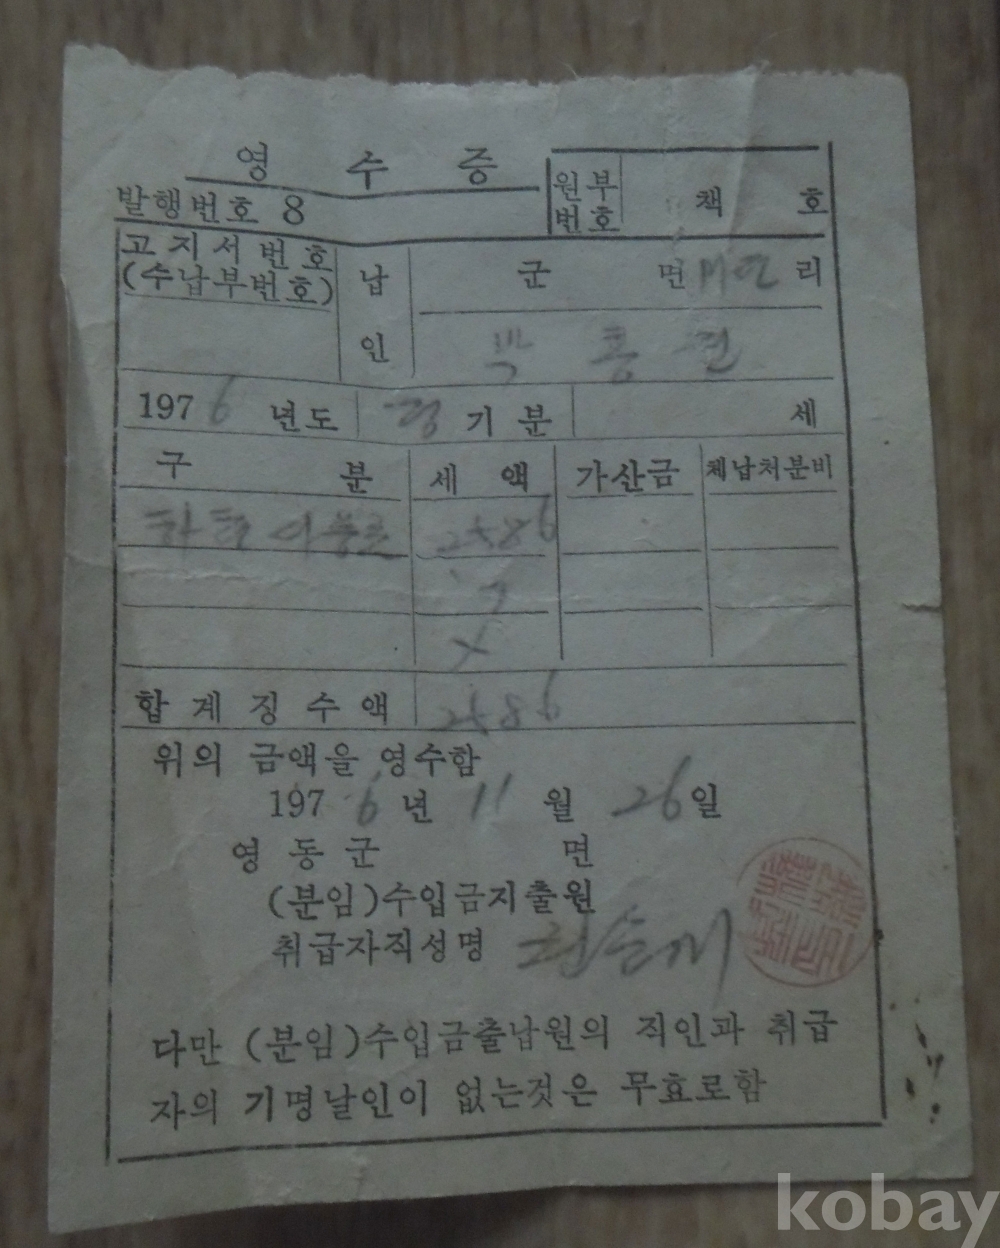 영 수 증
발행번호 8
원부번호 책 호
고지서번호
(수납부번호)
납인
군 면 리
1976 년도 정 기 분 세
구 분 세 액 가산금 체납처분비
2586
합 계 징 수 액 2586
위의 금액을 영수함
1976 년 11 월 26일
영 동 군 면
(분임)수입금지출원
취급자직성명
다만 (분임)수입금출납원의 직인과 취급
자의 기명날인이 없는것은 무효로함
kobay